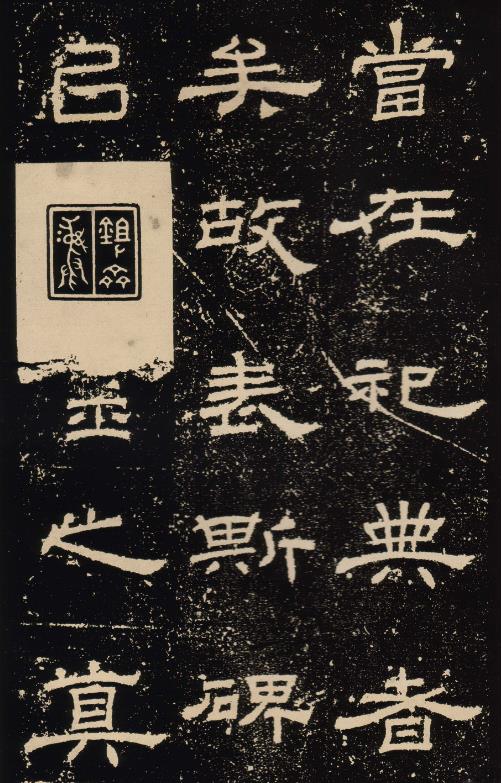 當在祀典者
矣故表斯碑
㠯之真